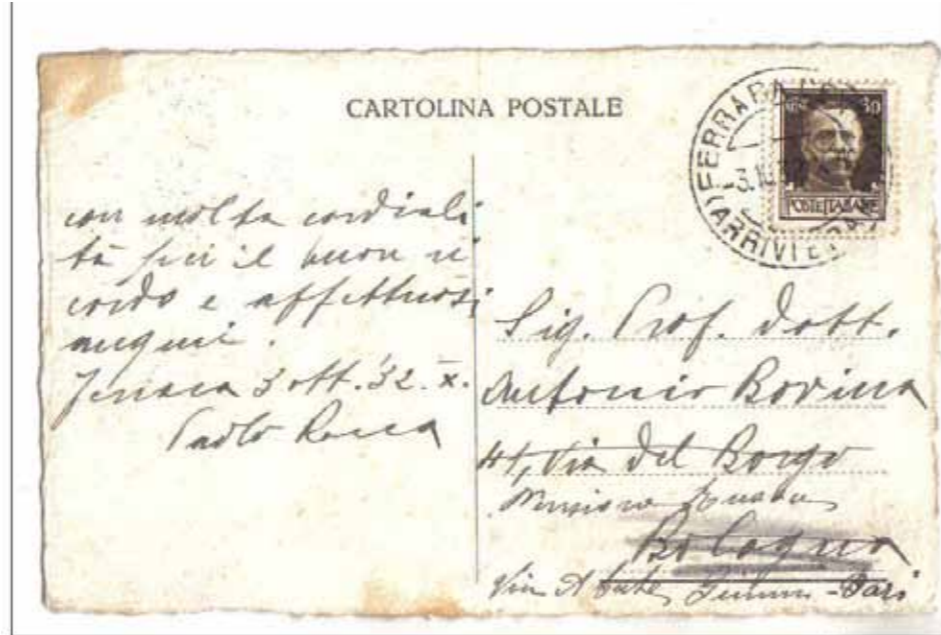 CARTOLINA POSTALE
FERRARA
-3.10
(ARRIVI E
30
POSTE ITALIANE
con molta cordiali
tà per il buon ri
cordo e affettuosi
auguri.
3 ott. '32. X.
Paolo
Sig. Prof. Dott.
Antonio Bovina
41, Via Del Borgo
Bologna
Via Abate Gimma - Bari